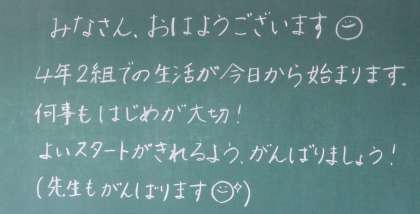 みなさん、おはようございます
4年2組での生活が今日から始まります。
何事もはじめが大切!
よいスタートがきれるよう、がんばりましょう!
(先生もがんばります)